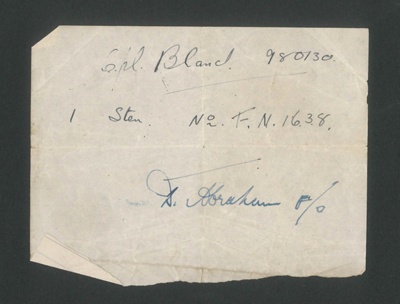 Cpl. Bland. 980130.
1 Sten. No. F.N. 1638.
D. Abraham F/O